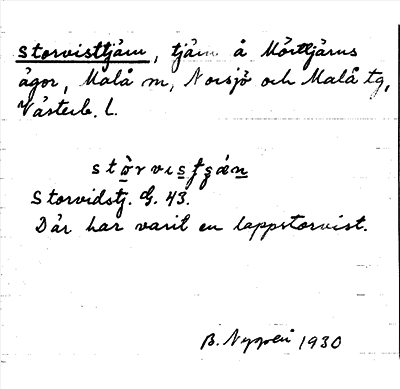 Storvisttjärn, tjärn å Mörttjärns
ägor, Malå sn, Norsjö och Malå tg,
Västerb. l.
stòrvistjǽn
Storvidstj. G. 43.
Där har varit en lappstorvist.
B. Nyman 1930